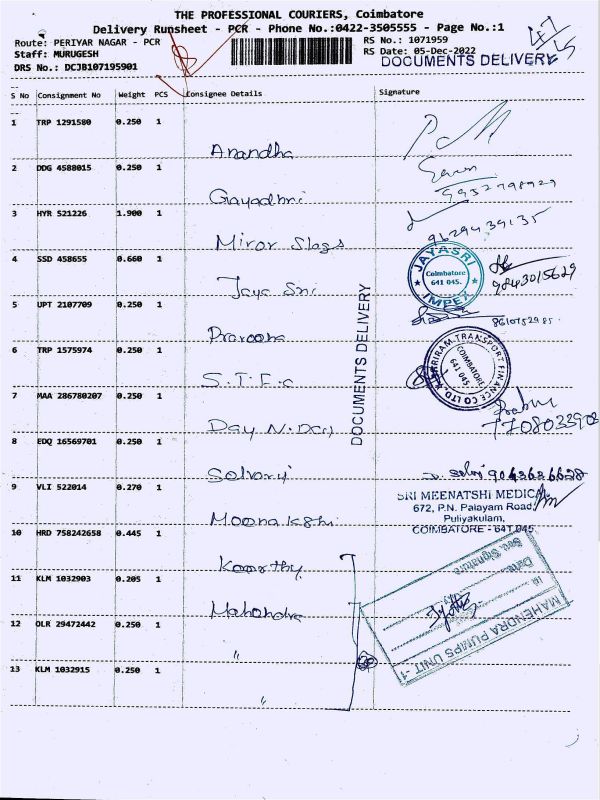 THE PROFESSIONAL COURIERS, Coimbatore
Delivery Runsheet - PCR - Phone No.:0422-3505555 - Page No.:1
Route: PERIYAR NAGAR - PCR
Staff: MURUGESH
DRS No.: DCJB107195901
RS No.: 1071959
RS Date: 05-Dec-2022
DOCUMENTS DELIVERY
S No Consignment No Weight PCS Consignee Details Signature
1 TRP 1291580 0.250 1
Anandha
2 DDG 4588015 0.250 1
9952798929
3 HYR 521226 1.900 1
Miror Slags 9629439135
4 SSD 458655 0.660 1
Jaya Sri
JAYASRI IMPEX
Coimbatore
641 045.
9843015629
5 UPT 2107709 0.250 1
6 TRP 1575974 0.250 1
S.T.F.C
SHRIRAM TRANSPORT FINANCE CO LTD.
COIMBATORE
641 045.
DOCUMENTS DELIVERY
7 MAA 286780207 0.250 1
Prabu
7708033908
8 EDQ 16569701 0.250 1
Selvaraj
9 VLI 522014 0.270 1
Moonakshi
SRI MEENATSHI MEDICAL
672, P.N. Palayam Road,
Puliyakulam,
COIMBATORE - 641 045
10 HRD 758242658 0.445 1
11 KLM 1032903 0.205 1
Mahendra
12 OLR 29472442 0.250 1
"
13 KLM 1032915 0.250 1
"
MAHENDRA PUMPS UNIT -1
Date:
Sec. Signature